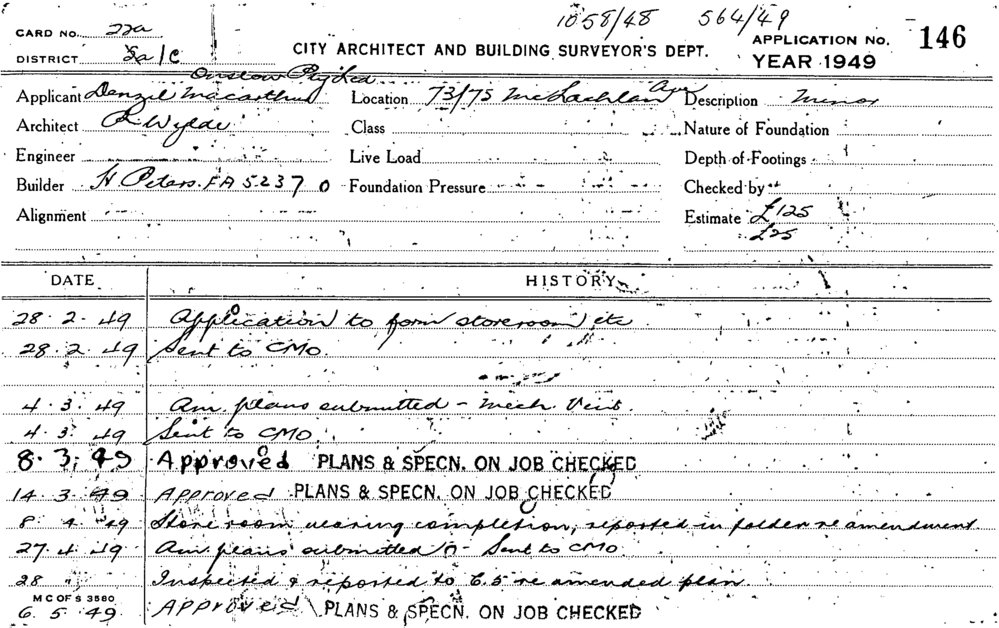 1058/48 564/49
CARD No. 22a
DISTRICT 2a/C
CITY ARCHITECT AND BUILDING SURVEYOR'S DEPT.
APPLICATION No. 146
YEAR 1949
Onslow Pty Ltd
Applicant Danzil Macarthur Location 73/75 McLachlan Ave Description Minor
Architect R Wylde Class Nature of Foundation
Engineer Live Load Depth of Footings
Builder H. Peters. FA 5237 0 Foundation Pressure Checked by
Alignment Estimate £125
£25
DATE HISTORY
28. 2. 49 Application to form storeroom etc
28. 2. 49 Sent to CMO.
4. 3. 49 Am. plans submitted - Mech. Vent.
4. 3. 49 Sent to CMO.
8. 3. 49 Approved PLANS & SPECN. ON JOB CHECKED
14. 3. 49 Approved PLANS & SPECN. ON JOB CHECKED
8. 4. 49 Store room nearing completion, reported in folder re amendment
27. 4. 49 Am. plans submitted - Sent to CMO.
28 " Inspected & reported to C.S re amended plan.
M C OF S 3580
6. 5. 49. APPROVED PLANS & SPECN. ON JOB CHECKED